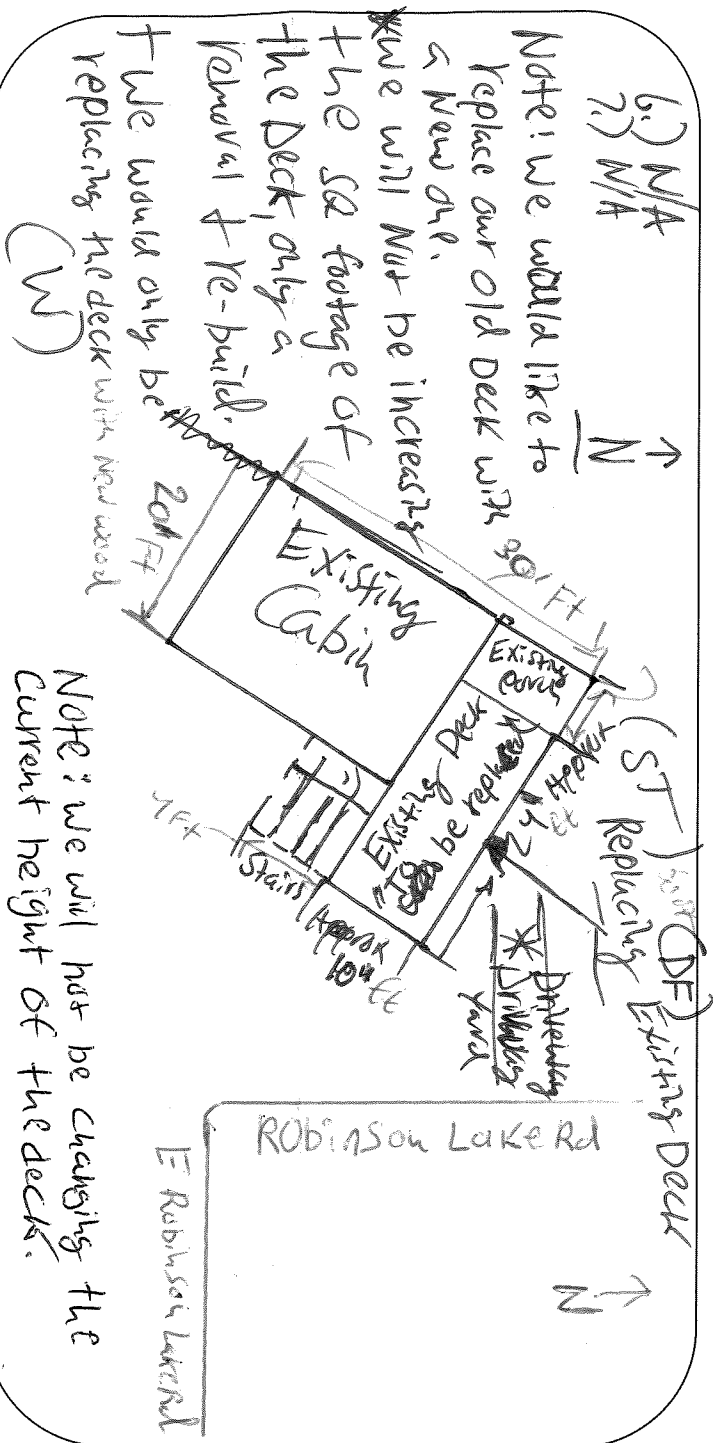 6.) N/A
7.) N/A
N
Note: we would like to
replace our old Deck with
a New one.
*we will Not be increasing
the SQ footage of
the Deck, only a
removal + re-build.
+ We would only be
replacing the deck with New wood
(W)
30' Ft
20 Ft
Existing
Cabin
Existing
Existing Deck
be replaced
Stairs
Approx
10" Ft
Approx
24 Ft
(ST)
(DF)
Replacing Existing Deck
* Driveway
Driveway
Yard
Robinson Lake Rd
E Robinson Lake Rd
N
Note: we will not be changing the
Current height of the deck.